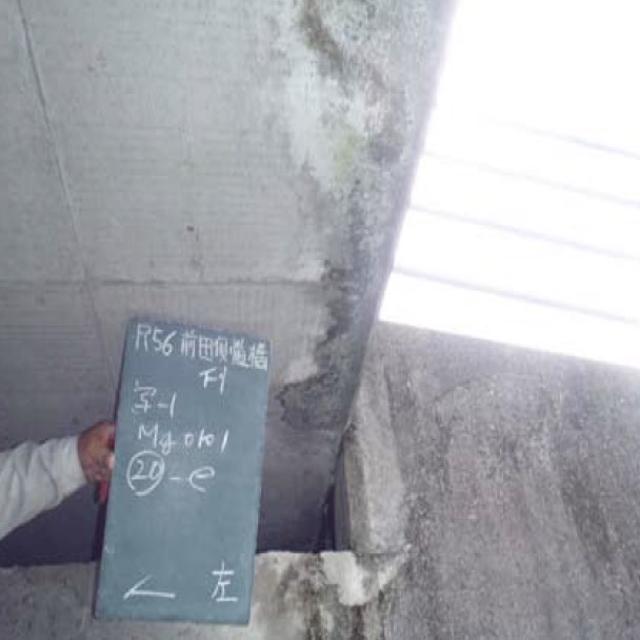 R56 前田側道橋
F1
写-1
Mg0101
⑳-e
左